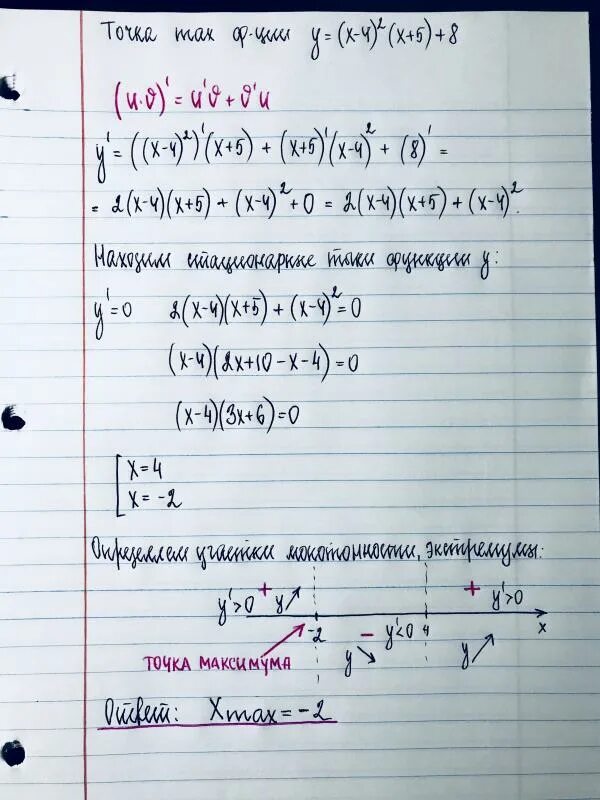 Точка max ф-ции y=(x-4)²(x+5)+8
(u·v)'=u'v+v'u
y'=((x-4)²)'(x+5)+(x+5)'(x-4)²+(8)'=
=2(x-4)(x+5)+(x-4)²+0=2(x-4)(x+5)+(x-4)².
Находим стационарные точки функции y:
y'=0 2(x-4)(x+5)+(x-4)²=0
(x-4)(2x+10-x-4)=0
(x-4)(3x+6)=0
x=4
x=-2
Определяем участки монотонности, экстремумы:
y'>0 + y↗ + y'>0
-2 − y'<0 4 x
ТОЧКА МАКСИМУМА y↘ y↗
Ответ: Xmax=-2